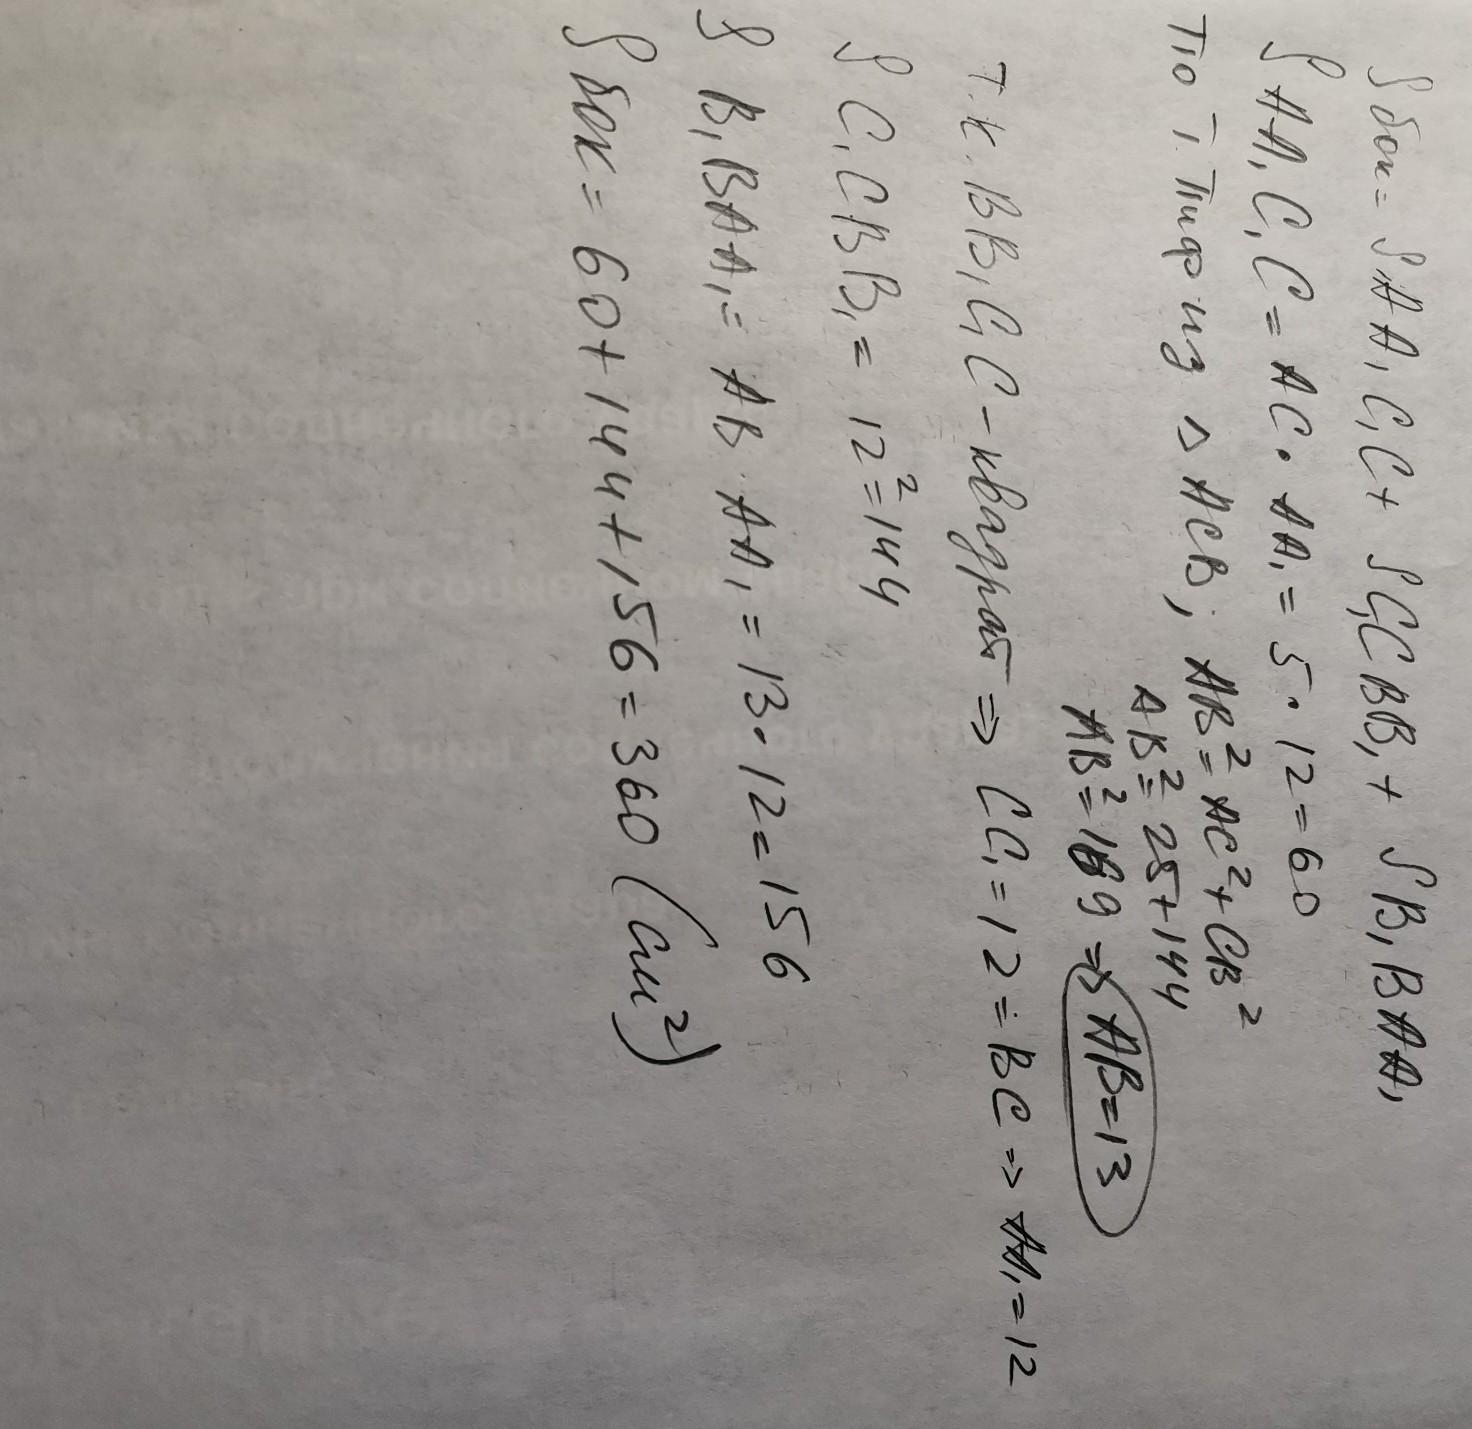 Sбок = SAA₁C₁C + SC₁CBB₁ + SB₁BAA₁
SAA₁C₁C = AC · AA₁ = 5 · 12 = 60
По т. Пиф из △ ACB; AB² = AC² + CB²
AB² = 25 + 144
AB² = 169 ⇒ AB = 13
т.к. BB₁C₁C - квадрат ⇒ CC₁ = 12 = BC ⇒ AA₁ = 12
SC₁CBB₁ = 12² = 144
SB₁BAA₁ = AB · AA₁ = 13 · 12 = 156
Sбок = 60 + 144 + 156 = 360 (см²)